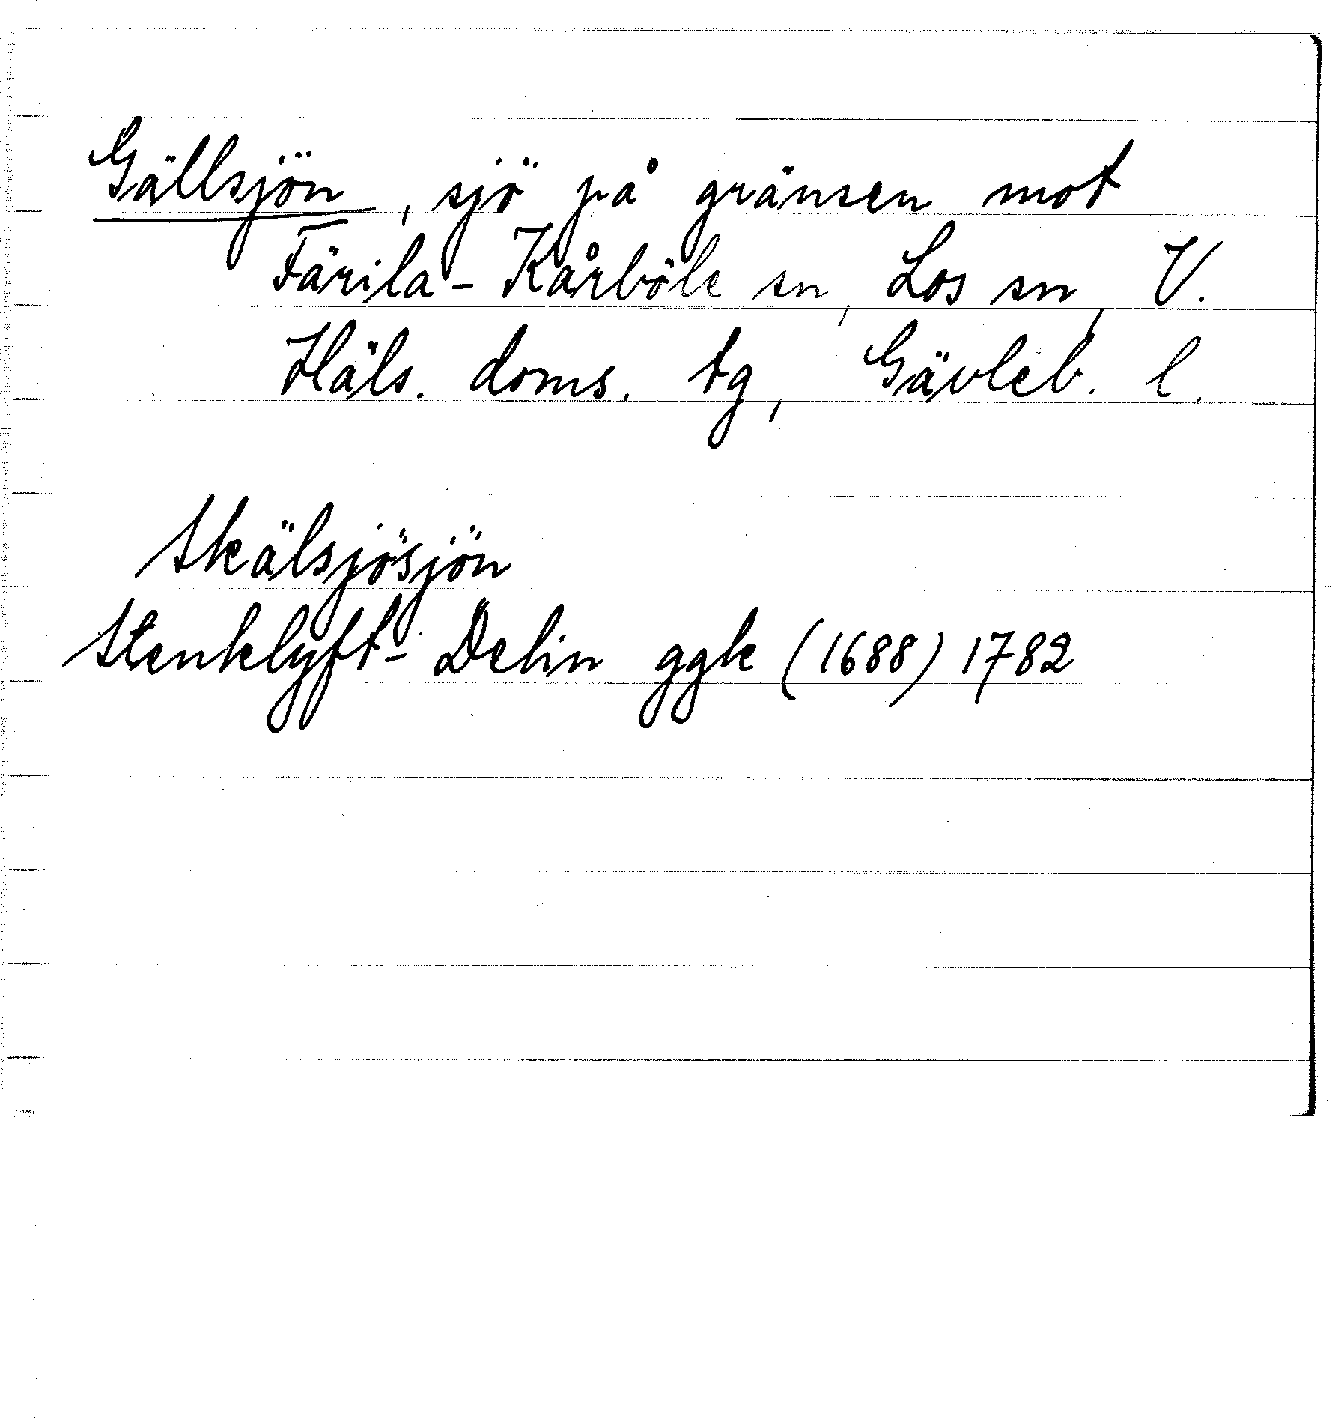 Gällsjön, sjö på gränsen mot
Färila-Kårböle sn, Los sn, V.
Häls. doms. tg, Gävleb. l.
Skälsjösjön
Stenklyft- Delin ggk (1688) 1782